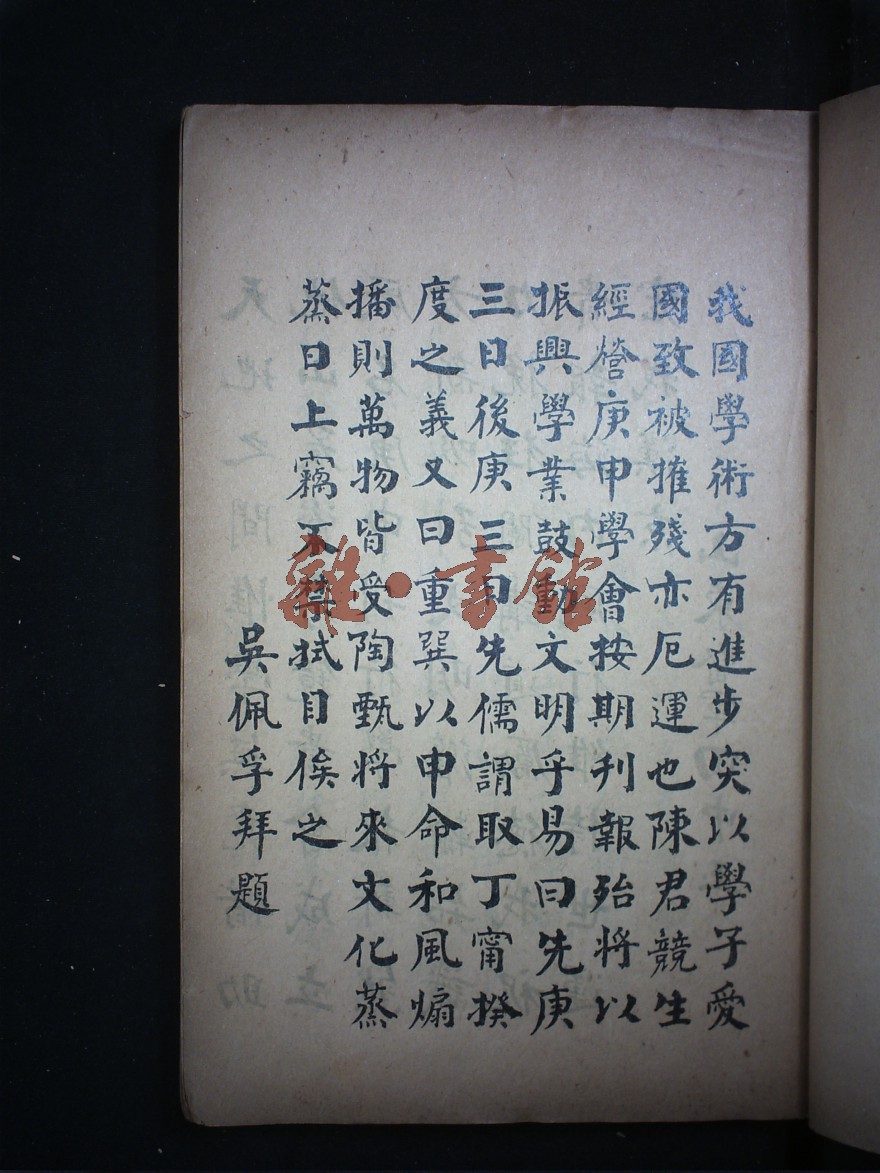 我國學術方有進步突以學子愛
國致被摧殘亦厄運也陳君競生
經營庚申學會按期刊報殆將以
振興學業鼓動文明乎易曰先庚
三日後庚三日先儒謂取丁甯揆
度之義又曰重巽以申命和風煽
播則萬物皆受陶甄將來文化蒸
蒸日上竊不禁拭目俟之
吳佩孚拜題
雜·書館